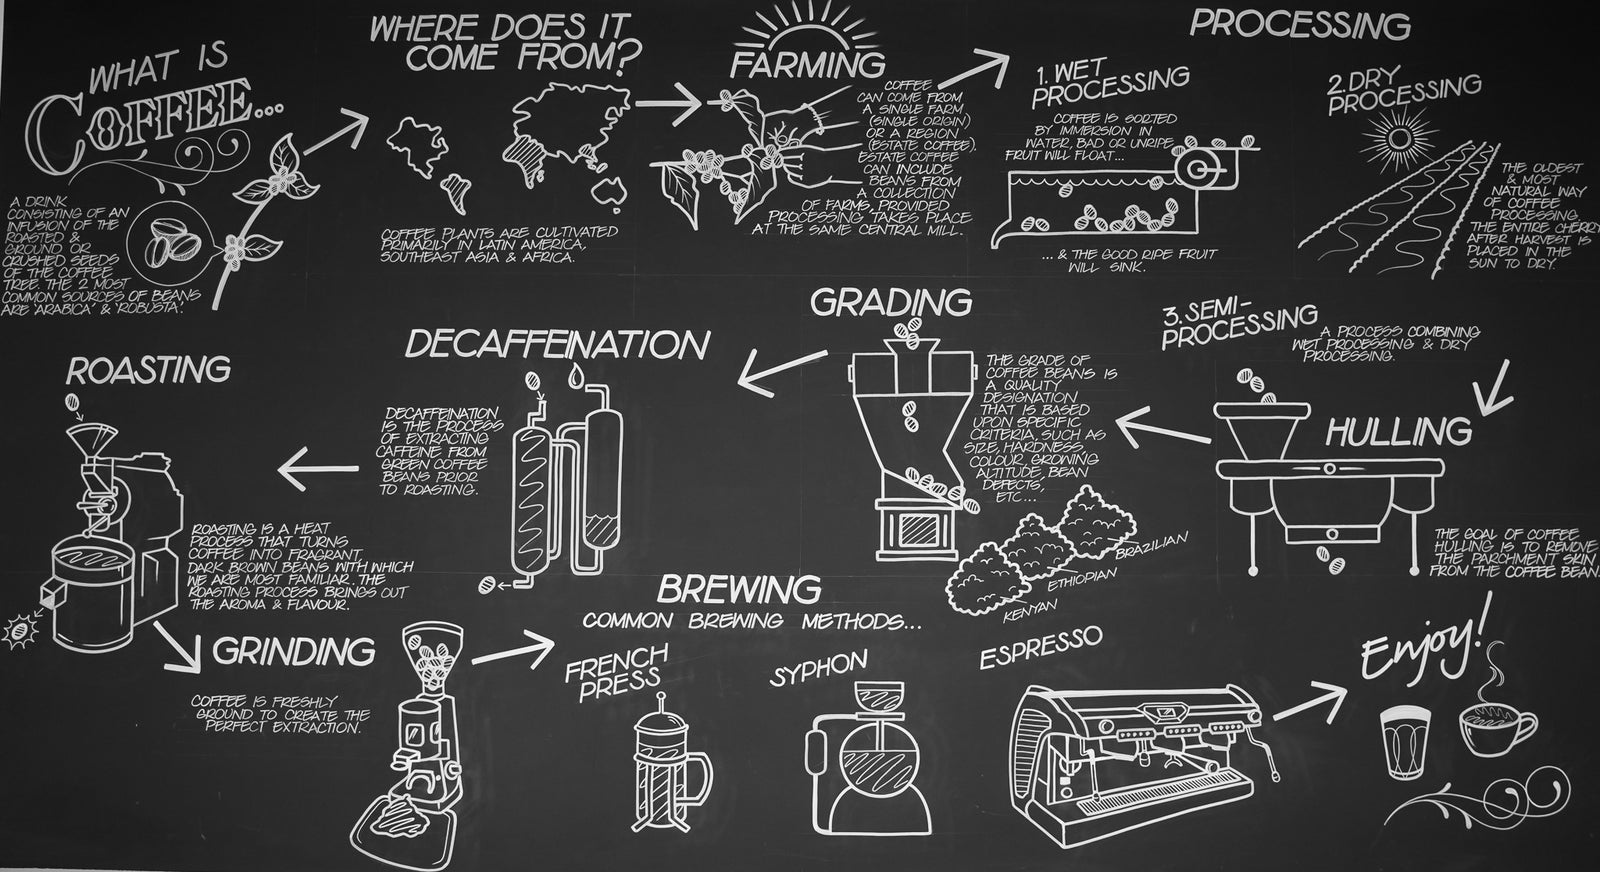 WHAT IS
COFFEE...
A DRINK
CONSISTING OF AN
INFUSION OF THE
ROASTED &
GROUND OR
CRUSHED SEEDS
OF THE COFFEE
TREE. THE 2 MOST
COMMON SOURCES OF BEANS
ARE 'ARABICA' & 'ROBUSTA'.
WHERE DOES IT
COME FROM?
COFFEE PLANTS ARE CULTIVATED
PRIMARILY IN LATIN AMERICA,
SOUTHEAST ASIA & AFRICA.
FARMING
COFFEE
CAN COME FROM
A SINGLE FARM
(SINGLE ORIGIN)
OR A REGION
(ESTATE COFFEE).
ESTATE COFFEE
CAN INCLUDE
BEANS FROM
A COLLECTION
OF FARMS, PROVIDED
PROCESSING TAKES PLACE
AT THE SAME CENTRAL MILL.
PROCESSING
1. WET
PROCESSING
COFFEE IS SORTED
BY IMMERSION IN
WATER, BAD OR UNRIPE
FRUIT WILL FLOAT...
... & THE GOOD RIPE FRUIT
WILL SINK.
2. DRY
PROCESSING
THE OLDEST
& MOST
NATURAL WAY
OF COFFEE
PROCESSING.
THE ENTIRE CHERRY
AFTER HARVEST IS
PLACED IN THE
SUN TO DRY.
3. SEMI-
PROCESSING
A PROCESS COMBINING
WET PROCESSING & DRY
PROCESSING.
HULLING
THE GOAL OF COFFEE
HULLING IS TO REMOVE
THE PARCHMENT SKIN
FROM THE COFFEE BEAN.
GRADING
THE GRADE OF
COFFEE BEANS IS
A QUALITY
DESIGNATION
THAT IS BASED
UPON SPECIFIC
CRITERIA, SUCH AS
SIZE, HARDNESS,
COLOUR, GROWING
ALTITUDE, BEAN
DEFECTS,
ETC...
BRAZILIAN
ETHIOPIAN
KENYAN
DECAFFEINATION
DECAFFEINATION
IS THE PROCESS
OF EXTRACTING
CAFFEINE FROM
GREEN COFFEE
BEANS PRIOR
TO ROASTING.
ROASTING
ROASTING IS A HEAT
PROCESS THAT TURNS
COFFEE INTO FRAGRANT,
DARK BROWN BEANS WITH WHICH
WE ARE MOST FAMILIAR. THE
ROASTING PROCESS BRINGS OUT
THE AROMA & FLAVOUR.
GRINDING
COFFEE IS FRESHLY
GROUND TO CREATE THE
PERFECT EXTRACTION.
BREWING
COMMON BREWING METHODS...
FRENCH
PRESS
SYPHON
ESPRESSO
Enjoy!